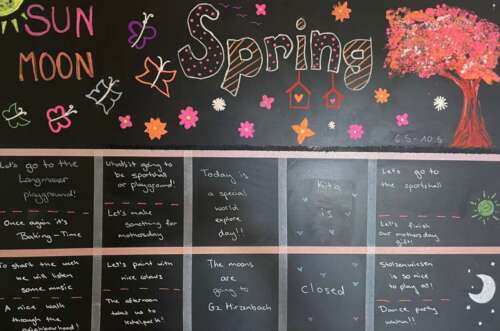 SUN
MOON
Spring
6.5-10.5
Let's go to the
Langmoor
playground!
Once again it's
Baking-Time
Whatist going to
be sportshall
or playground!
Let's make
something for
mothersday
Today is
a special
world
explore
day!!
Kita
is
Let's go to
the sportshall
Let's finish
our mothersday
gift!
To start the week
we will listen
some music
A nice walk
through the
neighbourhood!
Let's paint with
nice colours
The afternoon
takes us to
The moons
are
going to
GZ Hirzenbach
closed
Stolzenwiesen
is so nice
to play at!
Dance party